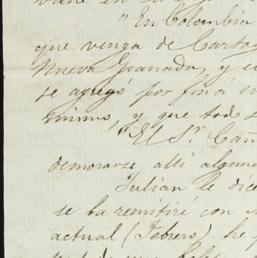 "En Colombia
que venga de Carta
Nueva Granada, y e
se agregó por fin á en
mismo, y que tod s
"El Sr. Cañ
demorarse allí alguno
Julian le dice
se la remitiré con
actual (Febrero) he